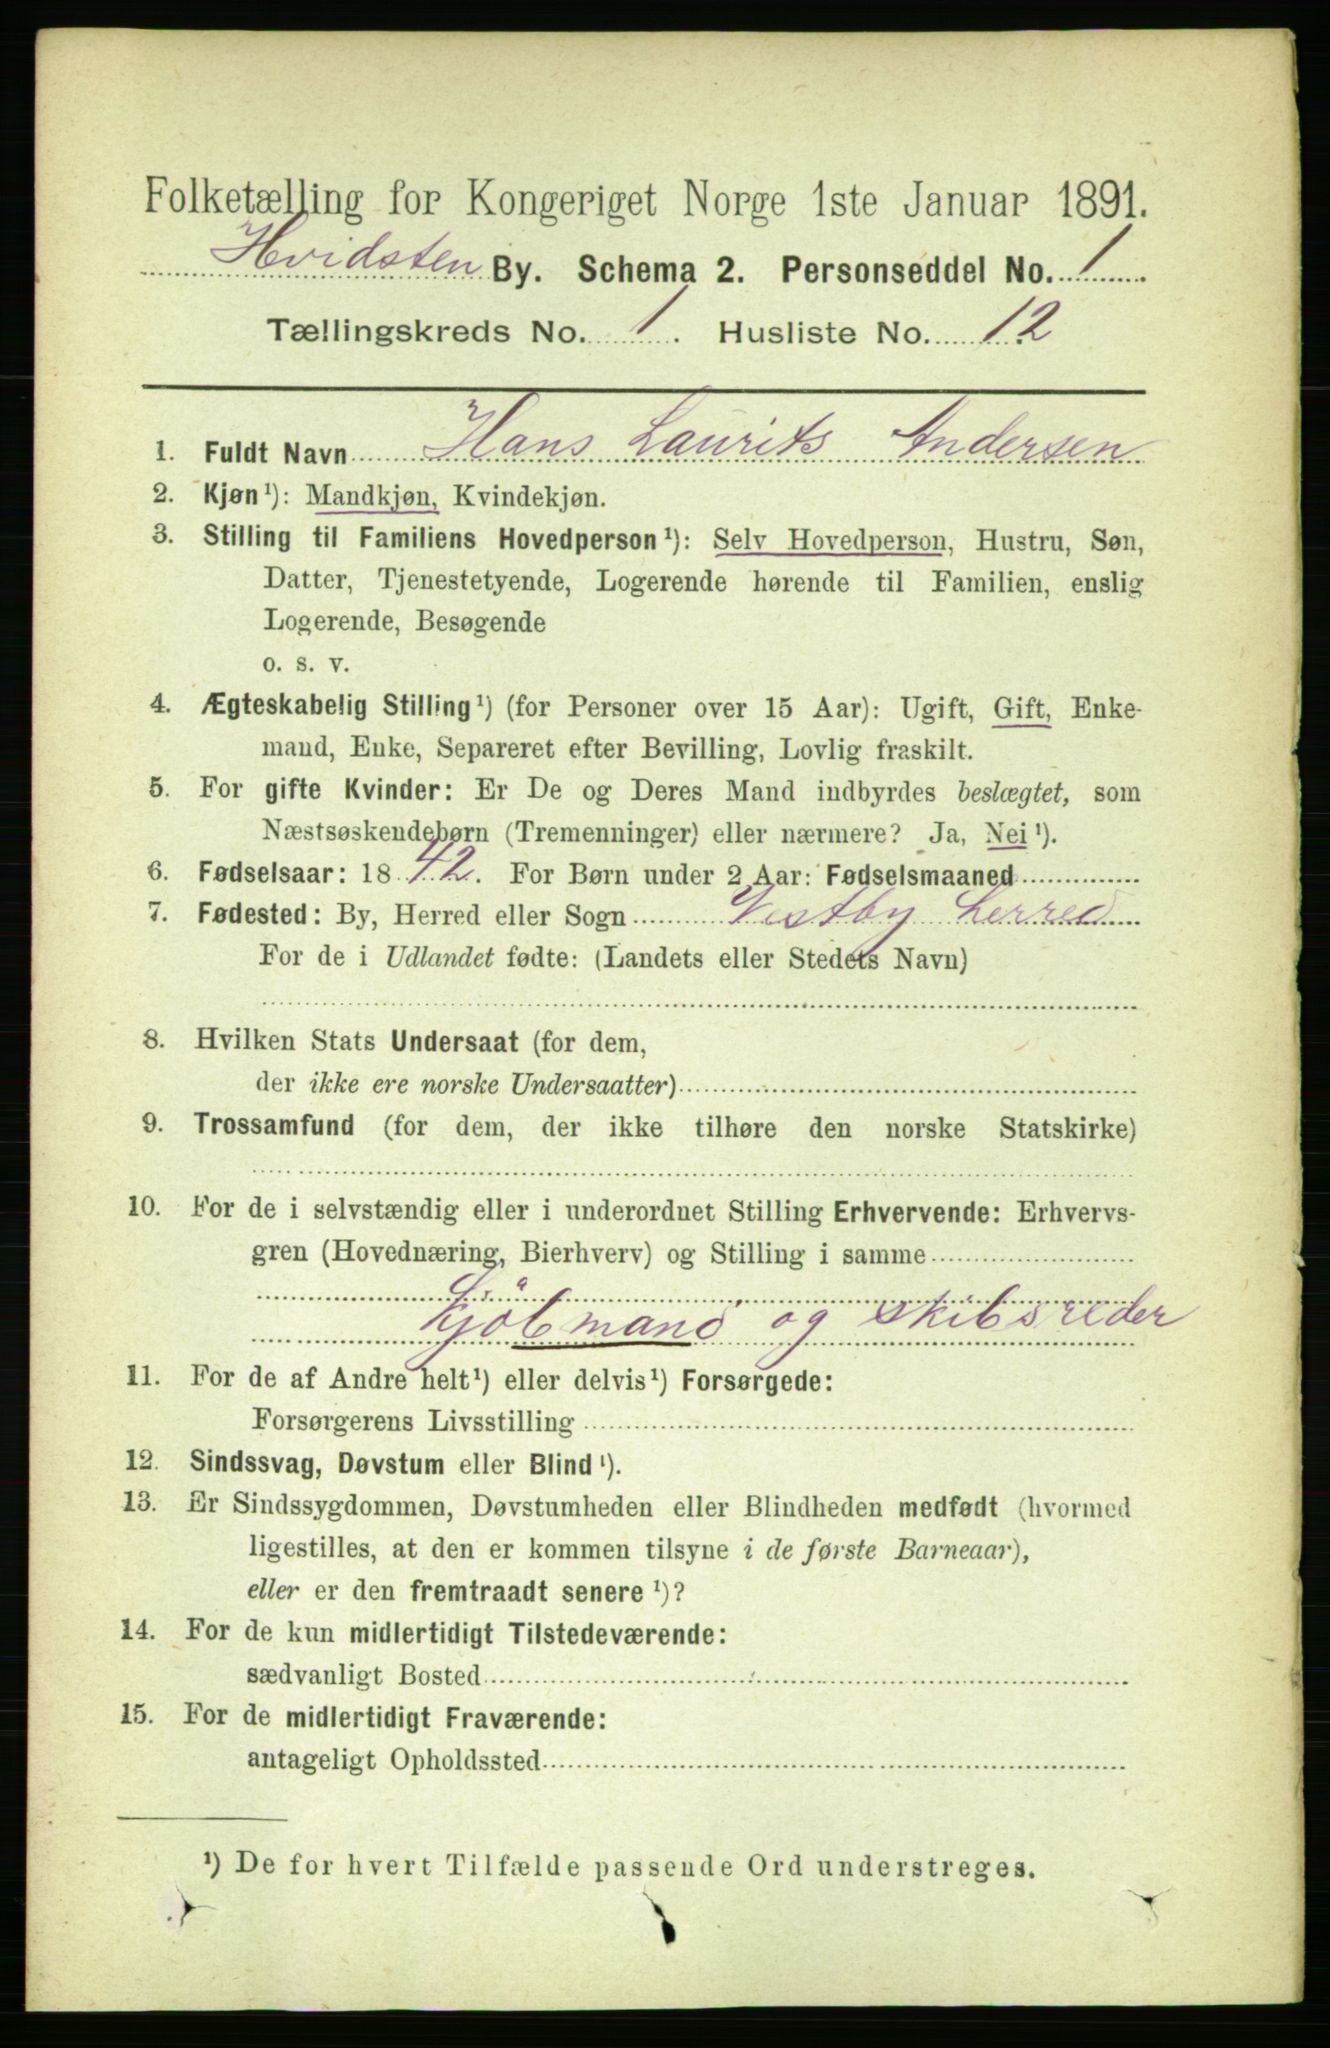 Folketælling for Kongeriget Norge 1ste Januar 1891.
Hvidsten By. Schema 2. Personseddel No. 1
Tællingskreds No. 1. Husliste No. 12
1. Fuldt Navn Hans Laurits Andersen
2. Kjøn¹): Mandkjøn, Kvindekjøn.
3. Stilling til Familiens Hovedperson¹): Selv Hovedperson, Hustru, Søn,
Datter, Tjenestetyende, Logerende hørende til Familien, enslig
Logerende, Besøgende
o. s. v.
4. Ægteskabelig Stilling¹) (for Personer over 15 Aar): Ugift, Gift, Enke-
mand, Enke, Separeret efter Bevilling, Lovlig fraskilt.
5. For gifte Kvinder: Er De og Deres Mand indbyrdes beslægtet, som
Næstsøskendebørn (Tremenninger) eller nærmere? Ja, Nei¹).
6. Fødselsaar: 1842. For Børn under 2 Aar: Fødselsmaaned
7. Fødested: By, Herred eller Sogn Vestby herred
For de i Udlandet fødte: (Landets eller Stedets Navn)
8. Hvilken Stats Undersaat (for dem,
der ikke ere norske Undersaatter)
9. Trossamfund (for dem, der ikke tilhøre den norske Statskirke)
10. For de i selvstændig eller i underordnet Stilling Erhvervende: Erhvervs-
gren (Hovednæring, Bierhverv) og Stilling i samme
Kjöbmand og skibsreder
11. For de af Andre helt¹) eller delvis¹) Forsørgede:
Forsørgerens Livsstilling
12. Sindssvag, Døvstum eller Blind¹).
13. Er Sindssygdommen, Døvstumheden eller Blindheden medfødt (hvormed
ligestilles, at den er kommen tilsyne i de første Barneaar),
eller er den fremtraadt senere¹)?
14. For de kun midlertidigt Tilstedeværende:
sædvanligt Bosted
15. For de midlertidigt Fraværende:
antageligt Opholdssted
¹) De for hvert Tilfælde passende Ord understreges.